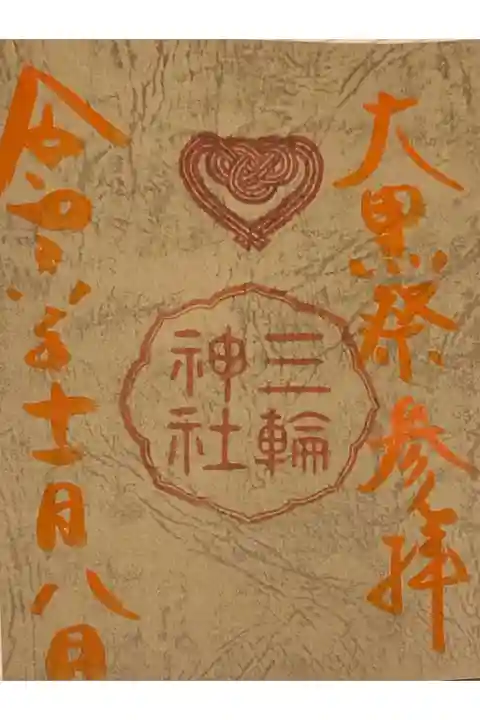 大黒祭 参拝
三輪
神社
令和六年十一月八日